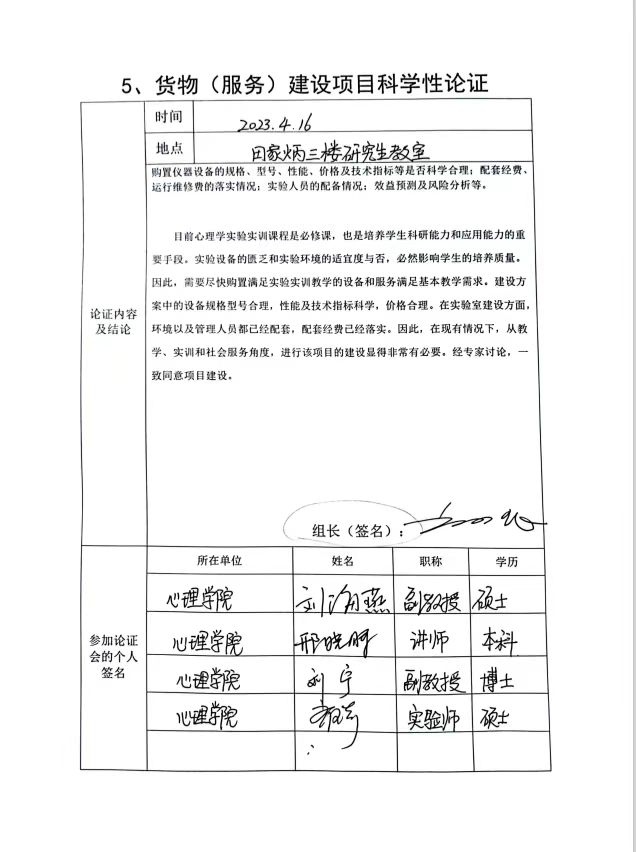 5、货物（服务）建设项目科学性论证
时间 2023.4.16
地点 田家炳三楼研究生教室
购置仪器设备的规格、型号、性能、价格及技术指标等是否科学合理；配套经费、
运行维修费的落实情况；实验人员的配备情况；效益预测及风险分析等。
目前心理学实验实训课程是必修课，也是培养学生科研能力和应用能力的重
要手段。实验设备的匮乏和实验环境的适宜度与否，必然影响学生的培养质量。
因此，需要尽快购置满足实验实训教学的设备和服务满足基本教学需求。建设方
案中的设备规格型号合理，性能及技术指标科学，价格合理。在实验室建设方面，
环境以及管理人员都已经配套，配套经费已经落实。因此，在现有情况下，从教
学、实训和社会服务角度，进行该项目的建设显得非常有必要。经专家讨论，一
致同意项目建设。
论证内容
及结论
组长（签名）：
所在单位 姓名 职称 学历
心理学院 刘海燕 副教授 硕士
心理学院 邢晓 讲师 本科
心理学院 刘宁 副教授 博士
心理学院 实验师 硕士
参加论证
会的个人
签名